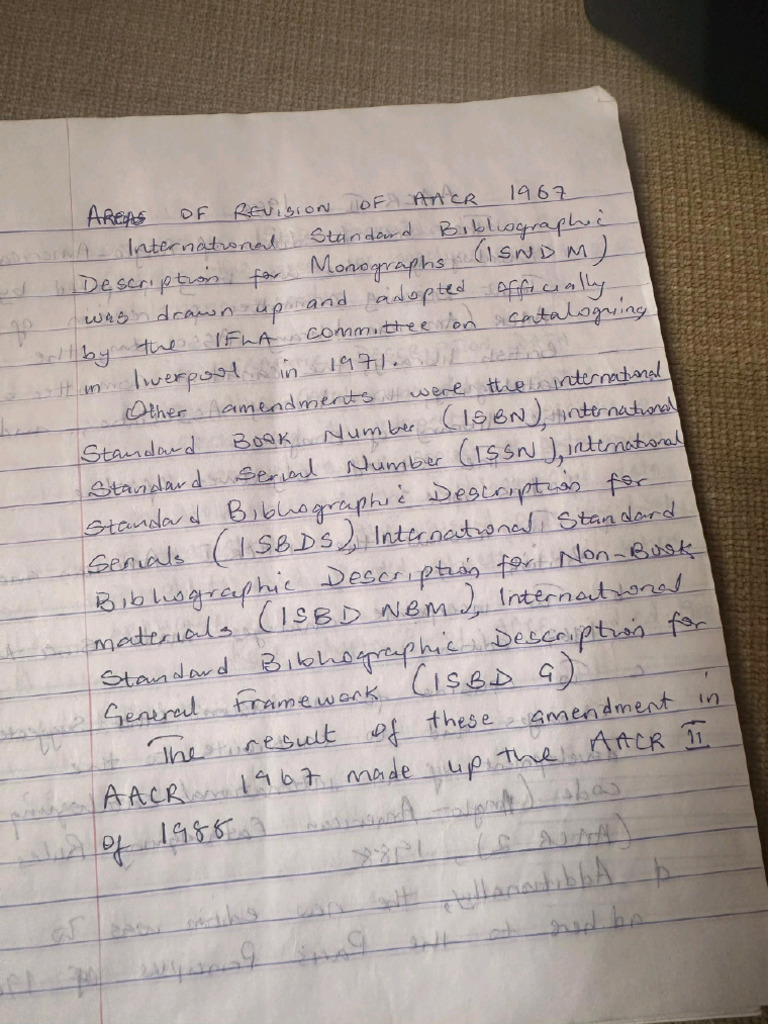 AREAS OF REVISION OF AACR 1967
International Standard Bibliographic
Description for Monographs (ISND M)
was drawn up and adopted officially
by the IFLA committee on cataloguing
in liverpool in 1971.
Other amendments were the international
Standard Book Number (ISBN), international
Standard Serial Number (ISSN), international
Standard Bibliographic Description for
Serials (ISBDS), International Standard
Bibliographic Description for Non-Book
materials (ISBD NBM), International
Standard Bibliographic Description for
General Framework (ISBD G)
The result of these amendment in
AACR 1967 made up the AACR II
of 1988